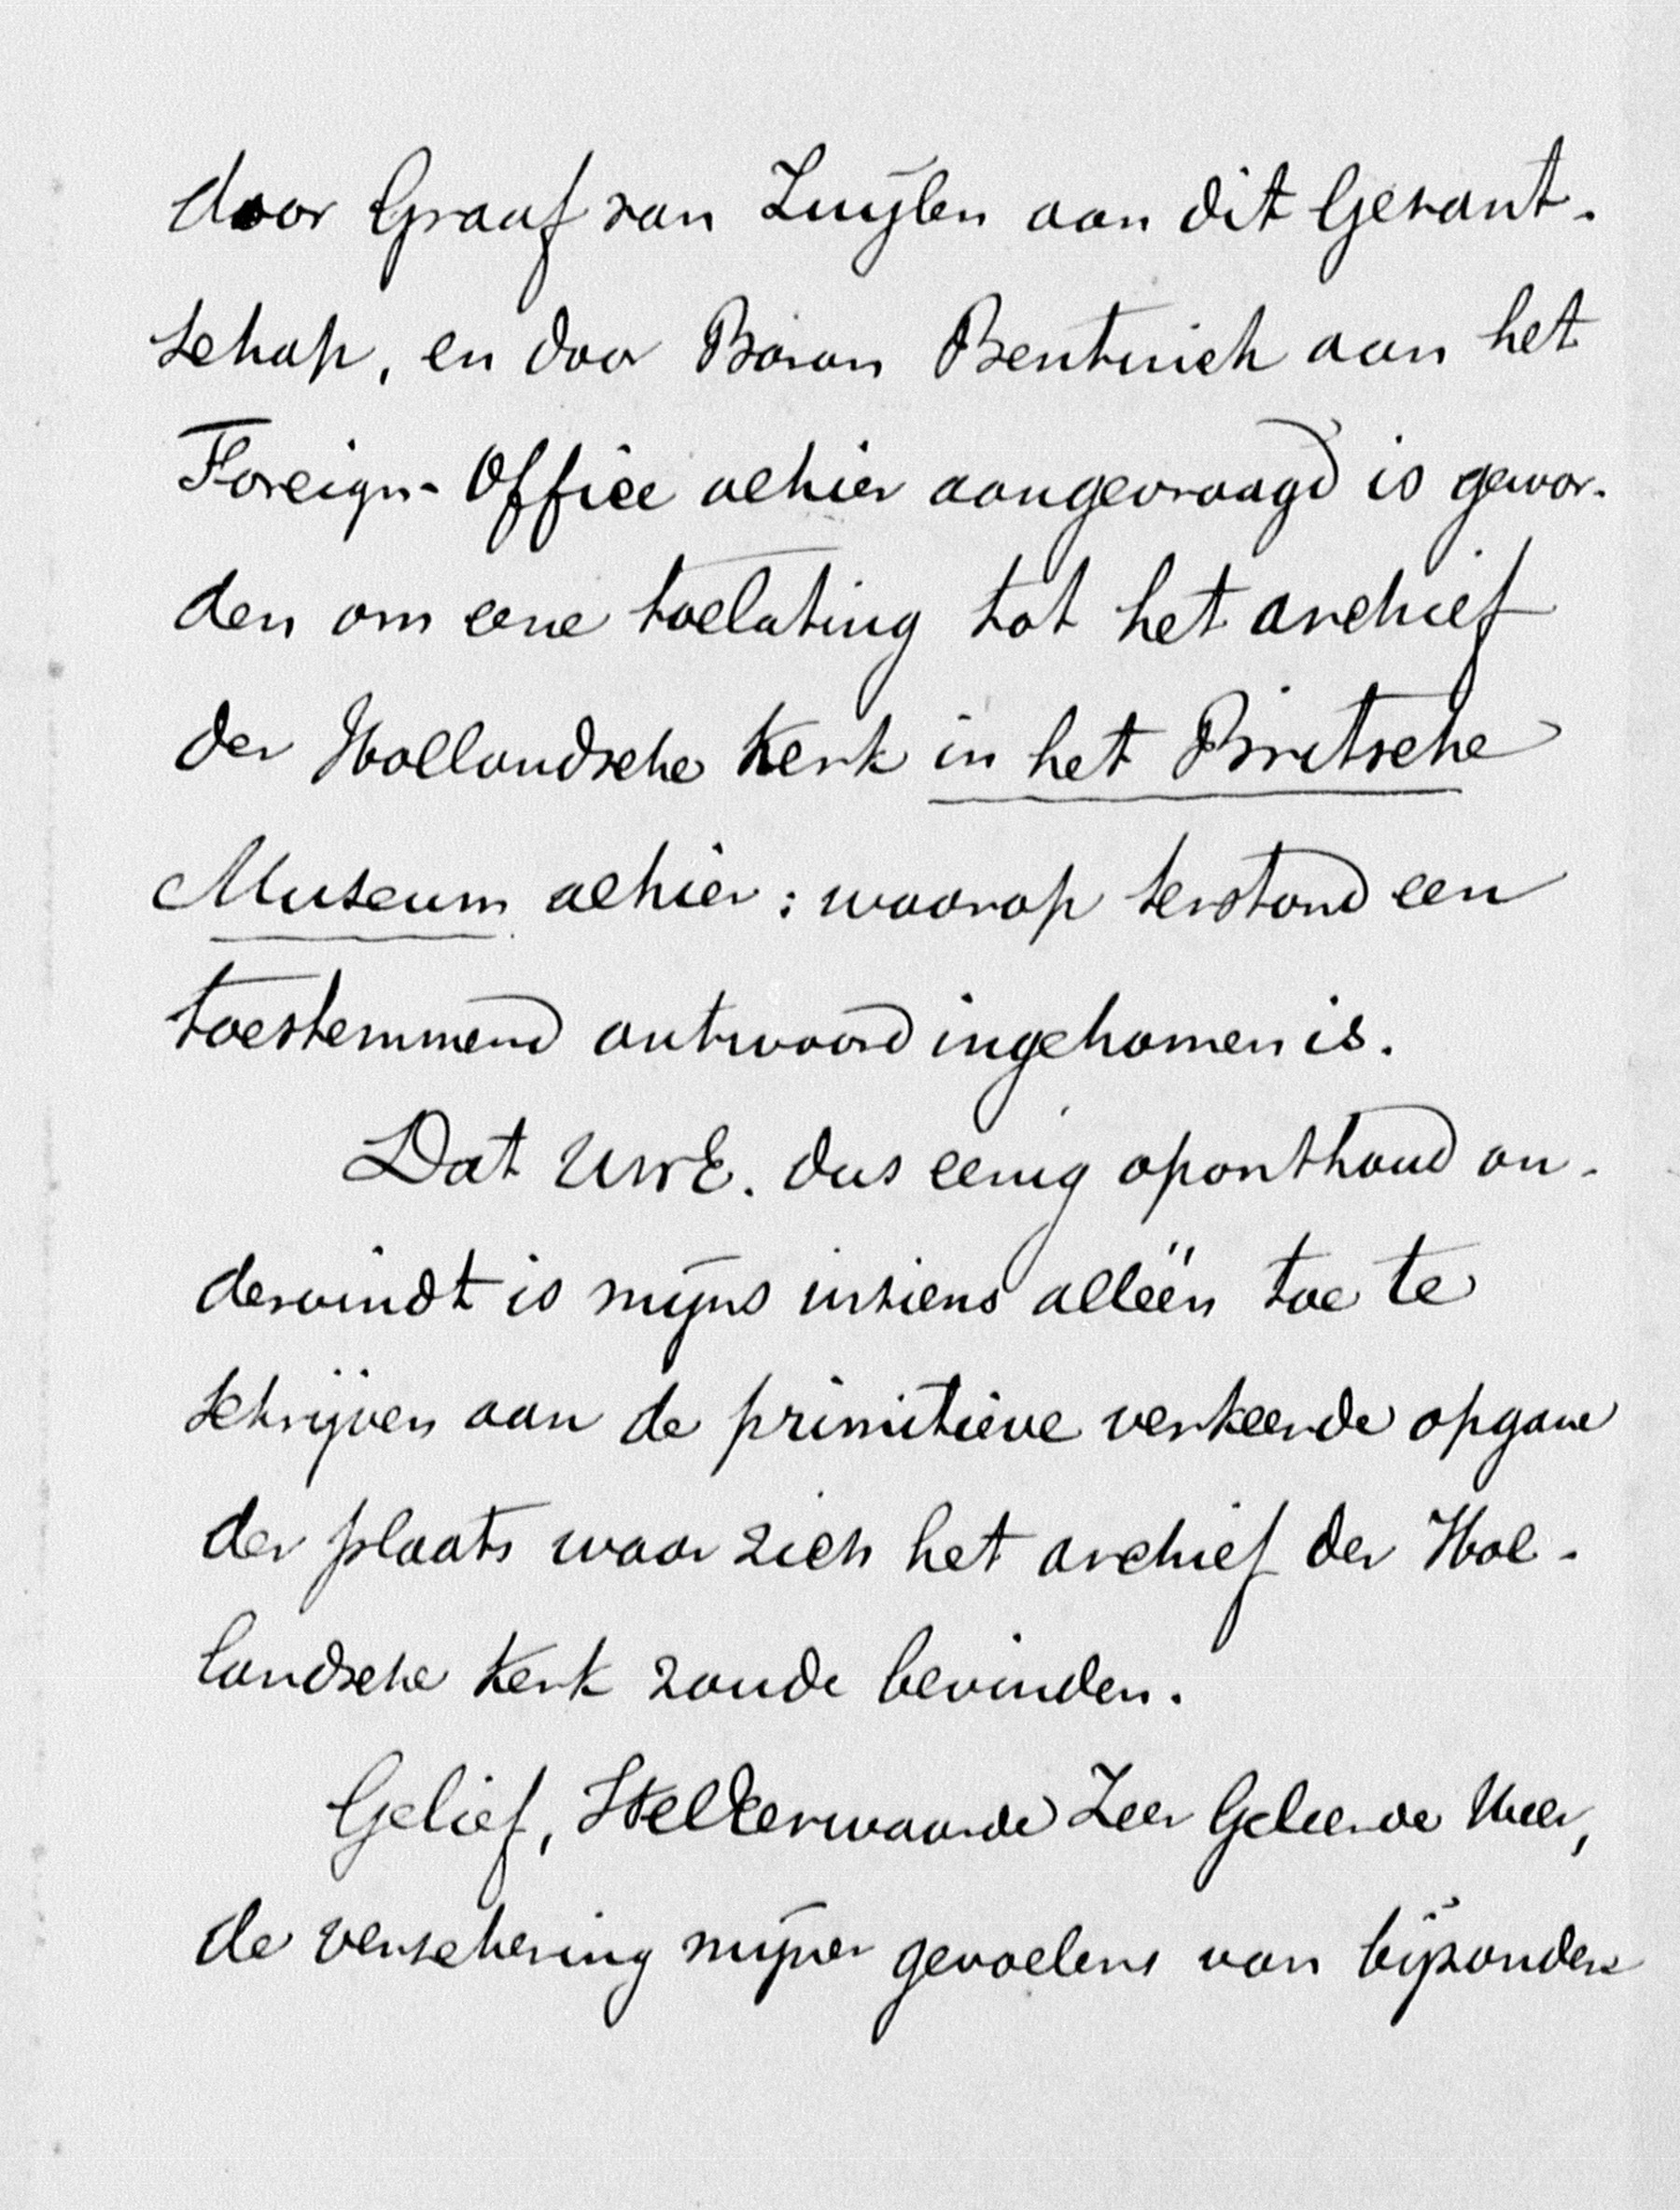 door Graaf van Zuijlen aan dit Gezant-
schap, en door Baron Bentinck aan het
Foreign-Office alhier aangevraagd is gewor-
den om eene toelating tot het archief
der Hollandsche Kerk in het Britsche
Museum alhier: waarop terstond een
toestemmend antwoord ingekomen is.
Dat UWE. dus eenig oponthoud on-
dervindt is mijns inziens alléén toe te
schrijven aan de primitieve verkeerde opgave
der plaats waar zich het archief der Hol-
landsche Kerk zoude bevinden.
Gelief, WelEerwaarde Zeer Geleerde Heer,
de verzekering mijner gevoelens van bijzondere